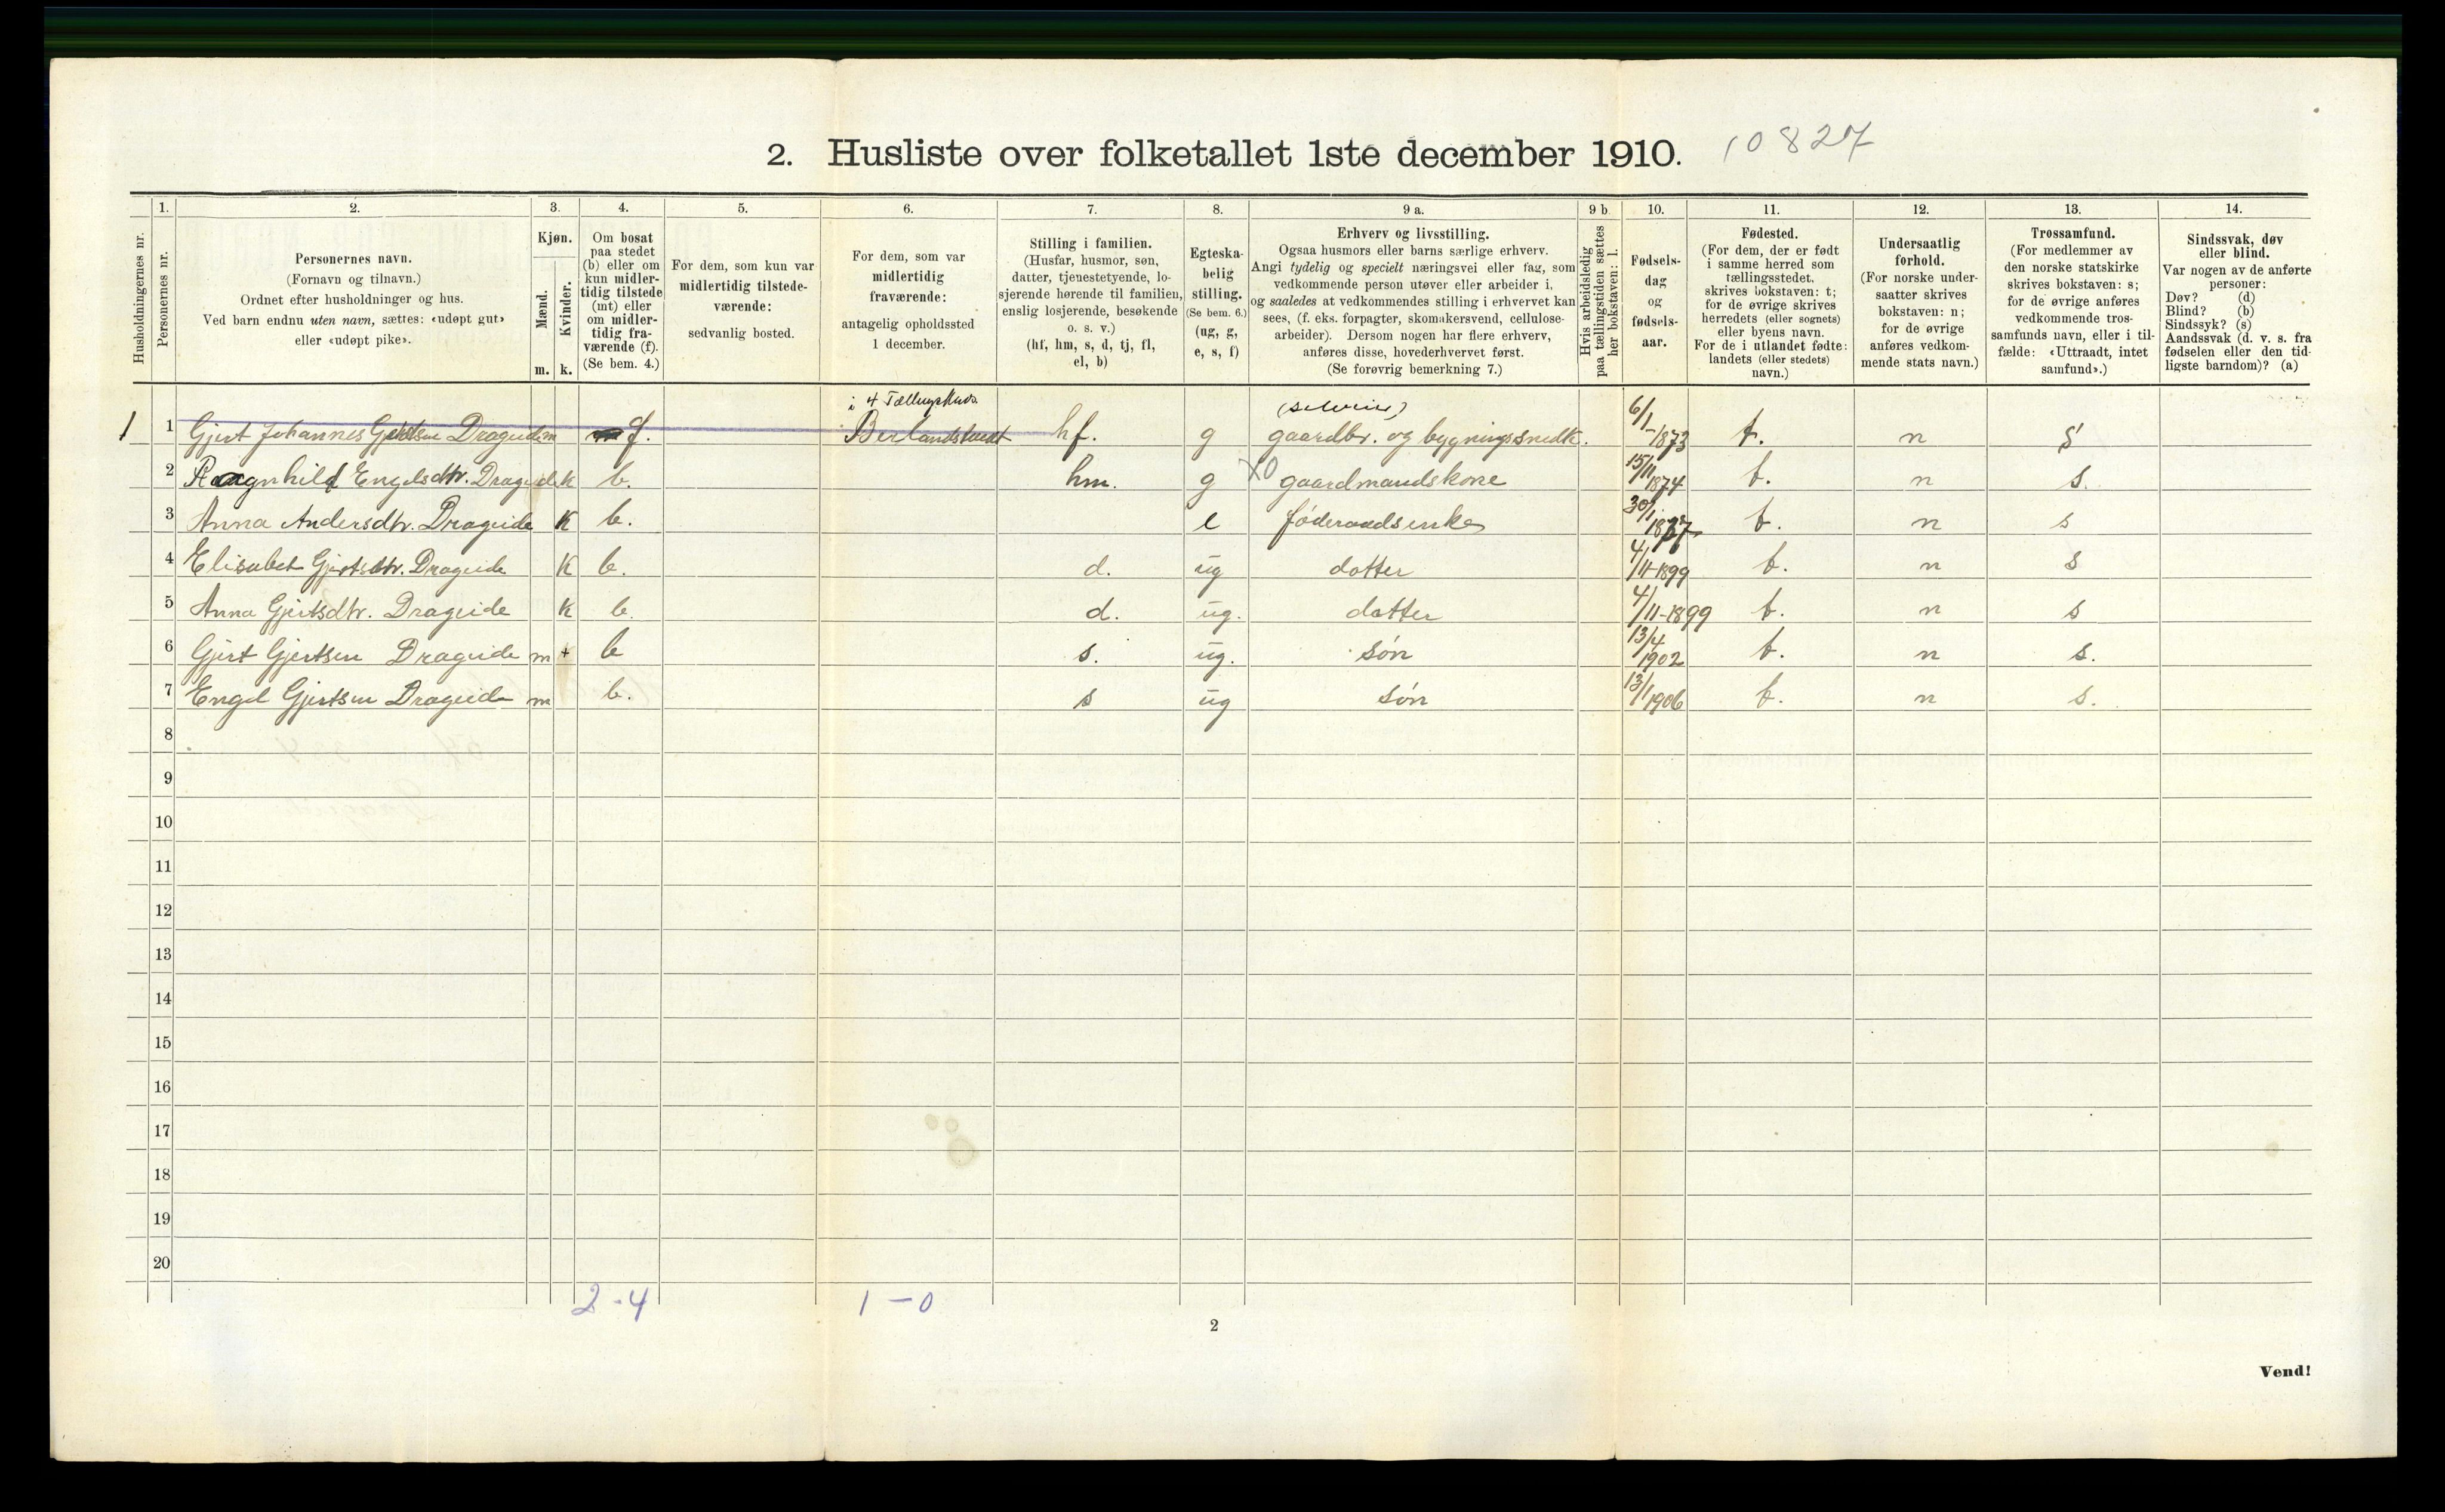 2. Husliste over folketallet 1ste december 1910. 10827
Husholdningernes nr.
1.
Personernes nr.
2.
Personernes navn.
(Fornavn og tilnavn.)
Ordnet efter husholdninger og hus.
Ved barn endnu uten navn, sættes: «udøpt gut»
eller «udøpt pike».
3.
Kjøn.
Mænd.
Kvinder.
m. k.
4.
Om bosat
paa stedet
(b) eller om
kun midler-
tidig tilstede
(mt) eller
om midler-
tidig fra-
værende (f).
(Se bem. 4.)
5.
For dem, som kun var
midlertidig tilstede-
værende:
sedvanlig bosted.
6.
For dem, som var
midlertidig
fraværende:
antagelig opholdssted
1 december.
7.
Stilling i familien.
(Husfar, husmor, søn,
datter, tjenestetyende, lo-
sjerende hørende til familien,
enslig losjerende, besøkende
o. s. v.)
(hf, hm, s, d, tj, fl,
el, b)
8.
Egteska-
belig
stilling.
(Se bem. 6.)
(ug, g,
e, s, f)
9 a.
Erhverv og livsstilling.
Ogsaa husmors eller barns særlige erhverv.
Angi tydelig og specielt næringsvei eller fag, som
vedkommende person utøver eller arbeider i,
og saaledes at vedkommendes stilling i erhvervet kan
sees, (f. eks. forpagter, skomakersvend, cellulose-
arbeider). Dersom nogen har flere erhverv,
anføres disse, hovederhvervet først.
(Se forøvrig bemerkning 7.)
9 b
Hvis arbeidsledig
paa tællingstiden sættes
her bokstaven: l.
10.
Fødsels-
dag
og
fødsels-
aar.
11.
Fødested.
(For dem, der er født
i samme herred som
tællingsstedet,
skrives bokstaven: t;
for de øvrige skrives
herredets (eller sognets)
eller byens navn.
For de i utlandet fødte:
landets (eller stedets)
navn.)
12.
Undersaatlig
forhold.
(For norske under-
saatter skrives
bokstaven: n;
for de øvrige
anføres vedkom-
mende stats navn.)
13.
Trossamfund.
(For medlemmer av
den norske statskirke
skrives bokstaven: s;
for de øvrige anføres
vedkommende tros-
samfunds navn, eller i til-
fælde: «Uttraadt, intet
samfund».)
14.
Sindssvak, døv
eller blind.
Var nogen av de anførte
personer:
Døv? (d)
Blind? (b)
Sindssyk? (s)
Aandssvak (d. v. s. fra
fødselen eller den tid-
ligste barndom)? (a)
1 1 Gjert Johannes Gjertsen Drageide m f. hf. g gaardbr. og bygningssnedk. 6/1-1873 t. n s
2 Ragnhild Engelsdtr. Drageide k b. hm. g gaardmandskone 15/11 1874 t. n s.
3 Anna Andersdtr. Drageide k b. e føderaadsenke 30/1 t. n s
4 Elisabet Gjertsdtr. Drageide k b. d. ug datter 4/11-1899 t. n s
5 Anna Gjertsdtr. Drageide k b. d. ug. datter 4/11-1899 t. n s
6 Gjert Gjertsen Drageide m b s. ug. søn 13/4 1902 t. n s.
7 Engel Gjertsen Drageide m b. s ug søn 13/1 1906 t. n s.
8
9
10
11
12
13
14
15
16
17
18
19
20
2-4 1-0
2
Vend!